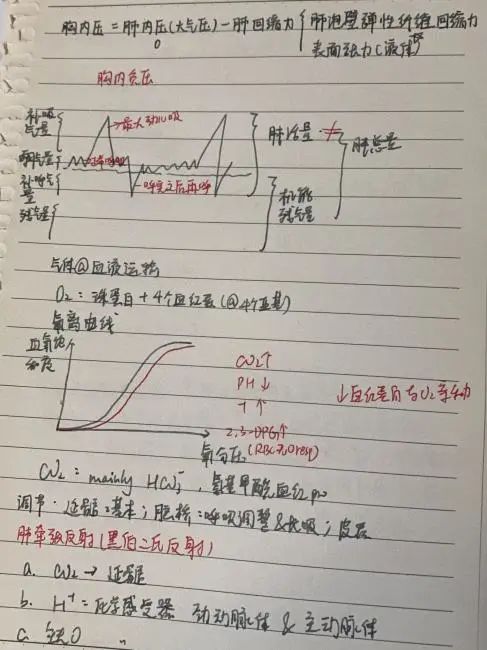 胸内压=肺内压(大气压)-肺回缩力{肺泡壁弹性纤维回缩力
0
表面张力(液体)
胸内负压
补吸气量
最大力吸
肺活量 ≠
肺总量
潮气量
补呼气量
呼完之后再呼
机能残气量
残气量
气体@血液运输
O2: 珠蛋白+4个血红素(@4个亚基)
氧离曲线
血氧饱和度
CO2↑
PH↓
T↑
2,3-DPG↑
(RBC无O resp)
↓血红蛋白与O2亲和力
氧分压
CO2: mainly HCO3-, 氨基甲酸血红pro
调节: 延髓:基本; 脑桥:呼吸调整&长吸; 皮层
肺牵张反射(黑伯二氏反射)
a. CO2 → 延髓
b. H+ = 化学感受器 颈动脉体 & 主动脉体
c. 缺O "